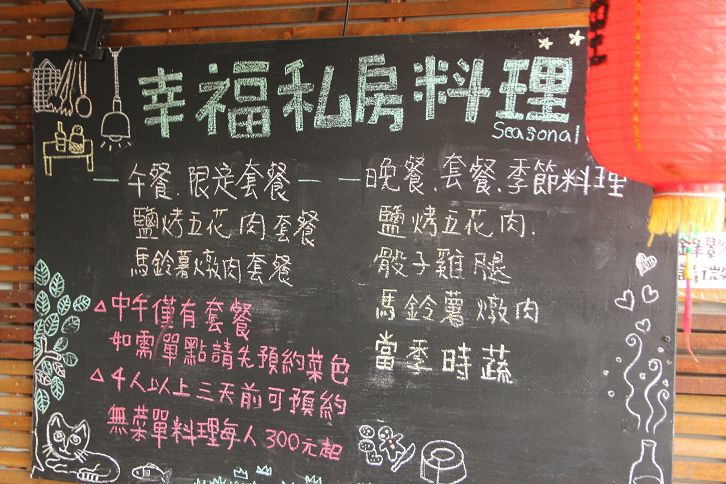 幸福私房料理
Seasonal
午餐.限定套餐
鹽烤五花肉套餐
馬鈴薯燉肉套餐
△中午僅有套餐
如需單點請先預約菜色
△4人以上三天前可預約
無菜單料理每人300元起
晚餐.套餐.季節料理
鹽烤五花肉.
骰子雞腿
馬鈴薯燉肉
當季時蔬